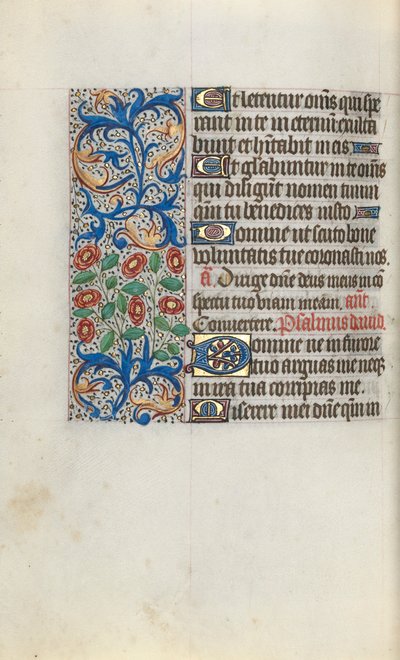 Et letentur om̄s qui spe
rant in te in eternū exulta
bunt et hītabit in eis
Et gl̄abuntur in te om̄s
qui diligūt nomen tuum
qm̄ tu benedices iusto
Domine ut scuto bone
voluntatis tue coronasti nos.
a. Dirige dn̄e deus meus in cō
spectu tuo viam meam. ant.
Convertere. Psalmus david.
Domine ne in furore
tuo arguas me neq
in ira tua corripias me.
Miserere mei dn̄e qm̄ in